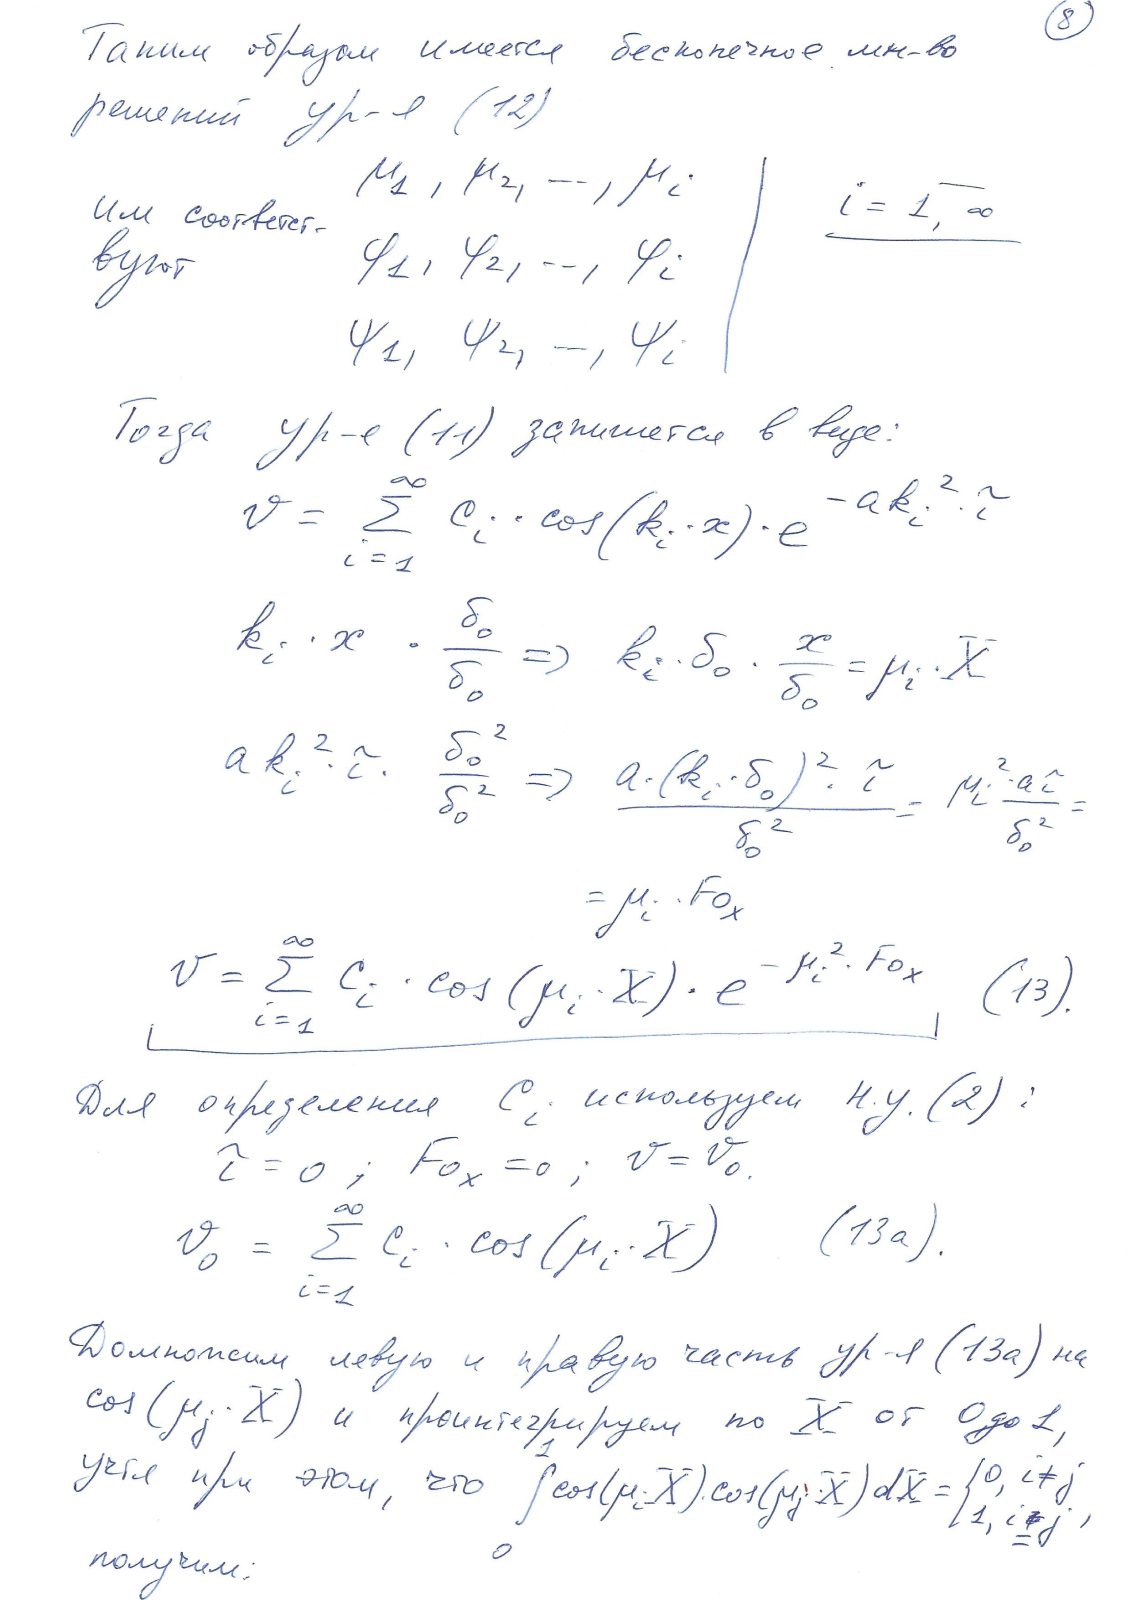 8
Таким образом имеется бесконечное мн-во
решений ур-я (12)
μ₁, μ₂, ..., μᵢ
i = 1, ∞
им соответст-
вуют
φ₁, φ₂, ..., φᵢ
ψ₁, ψ₂, ..., ψᵢ
Тогда ур-е (11) запишется в виде:
v = ∑_{i=1}^{∞} Cᵢ · cos(kᵢ · x) · e^{-akᵢ² · τ}
kᵢ · x · δ₀/δ₀ => kᵢ · δ₀ · x/δ₀ = μᵢ · X
akᵢ² · τ · δ₀²/δ₀² => a · (kᵢ · δ₀)² · τ/δ₀² = μᵢ² · aτ/δ₀² =
= μᵢ · Foₓ
v = ∑_{i=1}^{∞} Cᵢ · cos(μᵢ · X) · e^{-μᵢ² · Foₓ} (13).
Для определения Cᵢ используем н.у. (2):
τ = 0 ; Foₓ = 0 ; v = v₀.
v₀ = ∑_{i=1}^{∞} Cᵢ · cos(μᵢ · X) (13а).
Домножим левую и правую часть ур-я (13а) на
cos(μⱼ · X) и проинтегрируем по X от 0 до 1,
учтя при этом, что ∫₀¹ cos(μᵢ X) · cos(μⱼ · X) dX = {0, i≠j 1, i=j ,
получим: